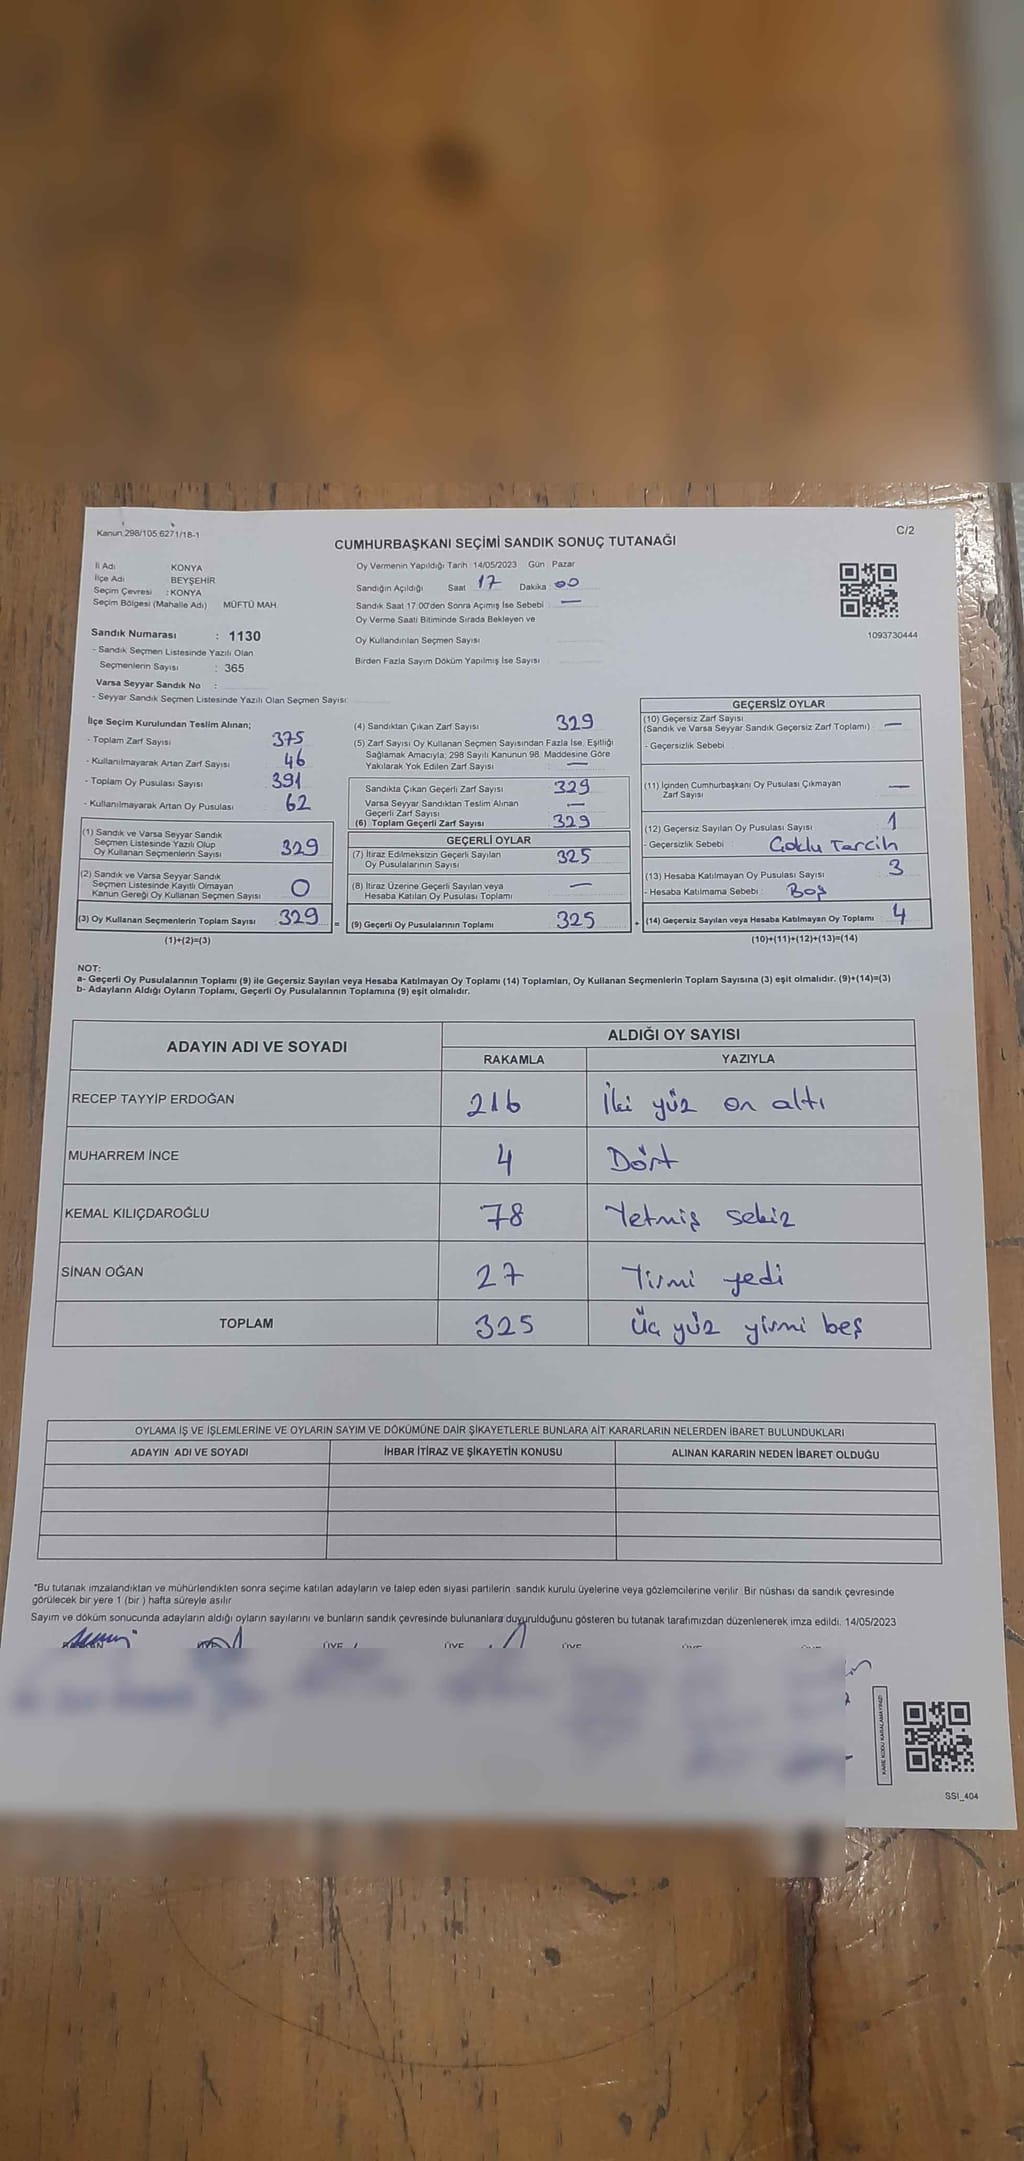 Kanun 298/105,6271/18-1
C/2
CUMHURBAŞKANI SEÇİMİ SANDIK SONUÇ TUTANAĞI
İl Adı KONYA
İlçe Adı BEYŞEHİR
Seçim Çevresi : KONYA
Seçim Bölgesi (Mahalle Adı) MÜFTÜ MAH.
Sandık Numarası : 1130
- Sandık Seçmen Listesinde Yazılı Olan
Seçmenlerin Sayısı : 365
Varsa Seyyar Sandık No :
- Seyyar Sandık Seçmen Listesinde Yazılı Olan Seçmen Sayısı:
Oy Vermenin Yapıldığı Tarih 14/05/2023 Gün Pazar
Sandığın Açıldığı Saat 17 Dakika 00
Sandık Saat 17:00'den Sonra Açımış İse Sebebi —
Oy Verme Saati Bitiminde Sırada Bekleyen ve
Oy Kullandırılan Seçmen Sayısı
Birden Fazla Sayım Döküm Yapılmış İse Sayısı
1093730444
İlçe Seçim Kurulundan Teslim Alınan;
- Toplam Zarf Sayısı 375
- Kullanılmayarak Artan Zarf Sayısı 46
- Toplam Oy Pusulası Sayısı 391
- Kullanılmayarak Artan Oy Pusulası 62
(1) Sandık ve Varsa Seyyar Sandık
Seçmen Listesinde Yazılı Olup
Oy Kullanan Seçmenlerin Sayısı 329
(2) Sandık ve Varsa Seyyar Sandık
Seçmen Listesinde Kayıtlı Olmayan
Kanun Gereği Oy Kullanan Seçmen Sayısı 0
(3) Oy Kullanan Seçmenlerin Toplam Sayısı 329 =
(1)+(2)=(3)
(4) Sandıktan Çıkan Zarf Sayısı 329
(5) Zarf Sayısı Oy Kullanan Seçmen Sayısından Fazla İse, Eşitliği
Sağlamak Amacıyla; 298 Sayılı Kanunun 98. Maddesine Göre
Yakılarak Yok Edilen Zarf Sayısı —
Sandıkta Çıkan Geçerli Zarf Sayısı 329
Varsa Seyyar Sandıktan Teslim Alınan
Geçerli Zarf Sayısı —
(6) Toplam Geçerli Zarf Sayısı 329
GEÇERLİ OYLAR
(7) İtiraz Edilmeksizin Geçerli Sayılan
Oy Pusulalarının Sayısı 325
(8) İtiraz Üzerine Geçerli Sayılan veya
Hesaba Katılan Oy Pusulası Toplamı —
(9) Geçerli Oy Pusulalarının Toplamı 325 +
GEÇERSİZ OYLAR
(10) Geçersiz Zarf Sayısı
(Sandık ve Varsa Seyyar Sandık Geçersiz Zarf Toplamı) —
- Geçersizlik Sebebi
(11) İçinden Cumhurbaşkanı Oy Pusulası Çıkmayan
Zarf Sayısı —
(12) Geçersiz Sayılan Oy Pusulası Sayısı 1
- Geçersizlik Sebebi Çoklu Tercih
(13) Hesaba Katılmayan Oy Pusulası Sayısı 3
- Hesaba Katılmama Sebebi : Boş
(14) Geçersiz Sayılan veya Hesaba Katılmayan Oy Toplamı 4
(10)+(11)+(12)+(13)=(14)
NOT:
a- Geçerli Oy Pusulalarının Toplamı (9) ile Geçersiz Sayılan veya Hesaba Katılmayan Oy Toplamı (14) Toplamları, Oy Kullanan Seçmenlerin Toplam Sayısına (3) eşit olmalıdır. (9)+(14)=(3)
b- Adayların Aldığı Oyların Toplamı, Geçerli Oy Pusulalarının Toplamına (9) eşit olmalıdır.
ADAYIN ADI VE SOYADI
ALDIĞI OY SAYISI
RAKAMLA YAZIYLA
RECEP TAYYİP ERDOĞAN 216 İki yüz on altı
MUHARREM İNCE 4 Dört
KEMAL KILIÇDAROĞLU 78 Yetmiş sekiz
SİNAN OĞAN 27 Yirmi yedi
TOPLAM 325 Üç yüz yirmi beş
OYLAMA İŞ VE İŞLEMLERİNE VE OYLARIN SAYIM VE DÖKÜMÜNE DAİR ŞİKAYETLERLE BUNLARA AİT KARARLARIN NELERDEN İBARET BULUNDUKLARI
ADAYIN ADI VE SOYADI İHBAR İTİRAZ VE ŞİKAYETİN KONUSU ALINAN KARARIN NEDEN İBARET OLDUĞU
*Bu tutanak imzalandıktan ve mühürlendikten sonra seçime katılan adayların ve talep eden siyasi partilerin sandık kurulu üyelerine veya gözlemcilerine verilir. Bir nüshası da sandık çevresinde
görülecek bir yere 1 (bir) hafta süreyle asılır.
Sayım ve döküm sonucunda adayların aldığı oyların sayılarını ve bunların sandık çevresinde bulunanlara duyurulduğunu gösteren bu tutanak tarafımızdan düzenlenerek imza edildi. 14/05/2023
ÜYE ÜYE ÜYE
KARE KODU KARALAMAYINIZ!
SSI_404